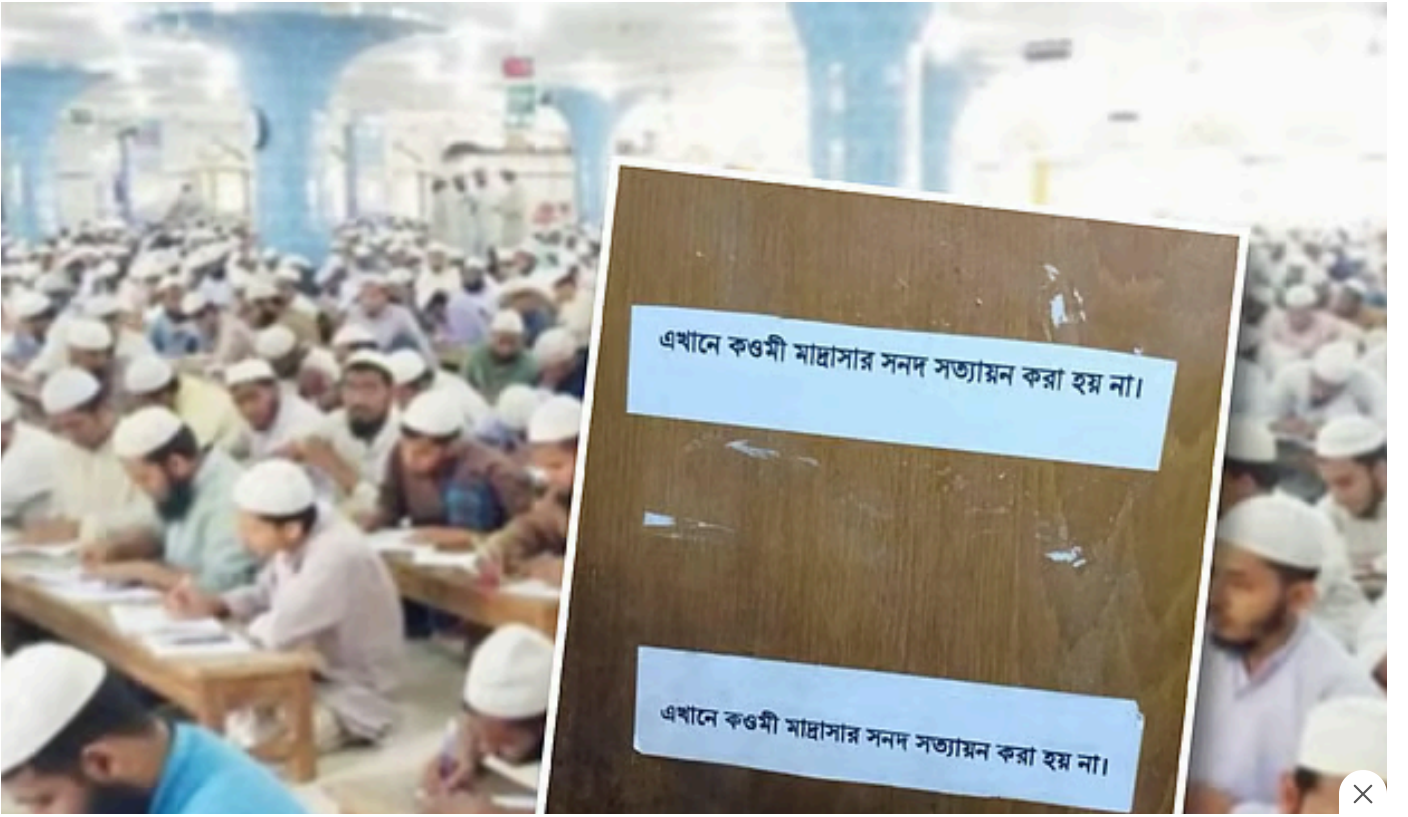 এখানে কওমী মাদ্রাসার সনদ সত্যায়ন করা হয় না।
এখানে কওমী মাদ্রাসার সনদ সত্যায়ন করা হয় না।